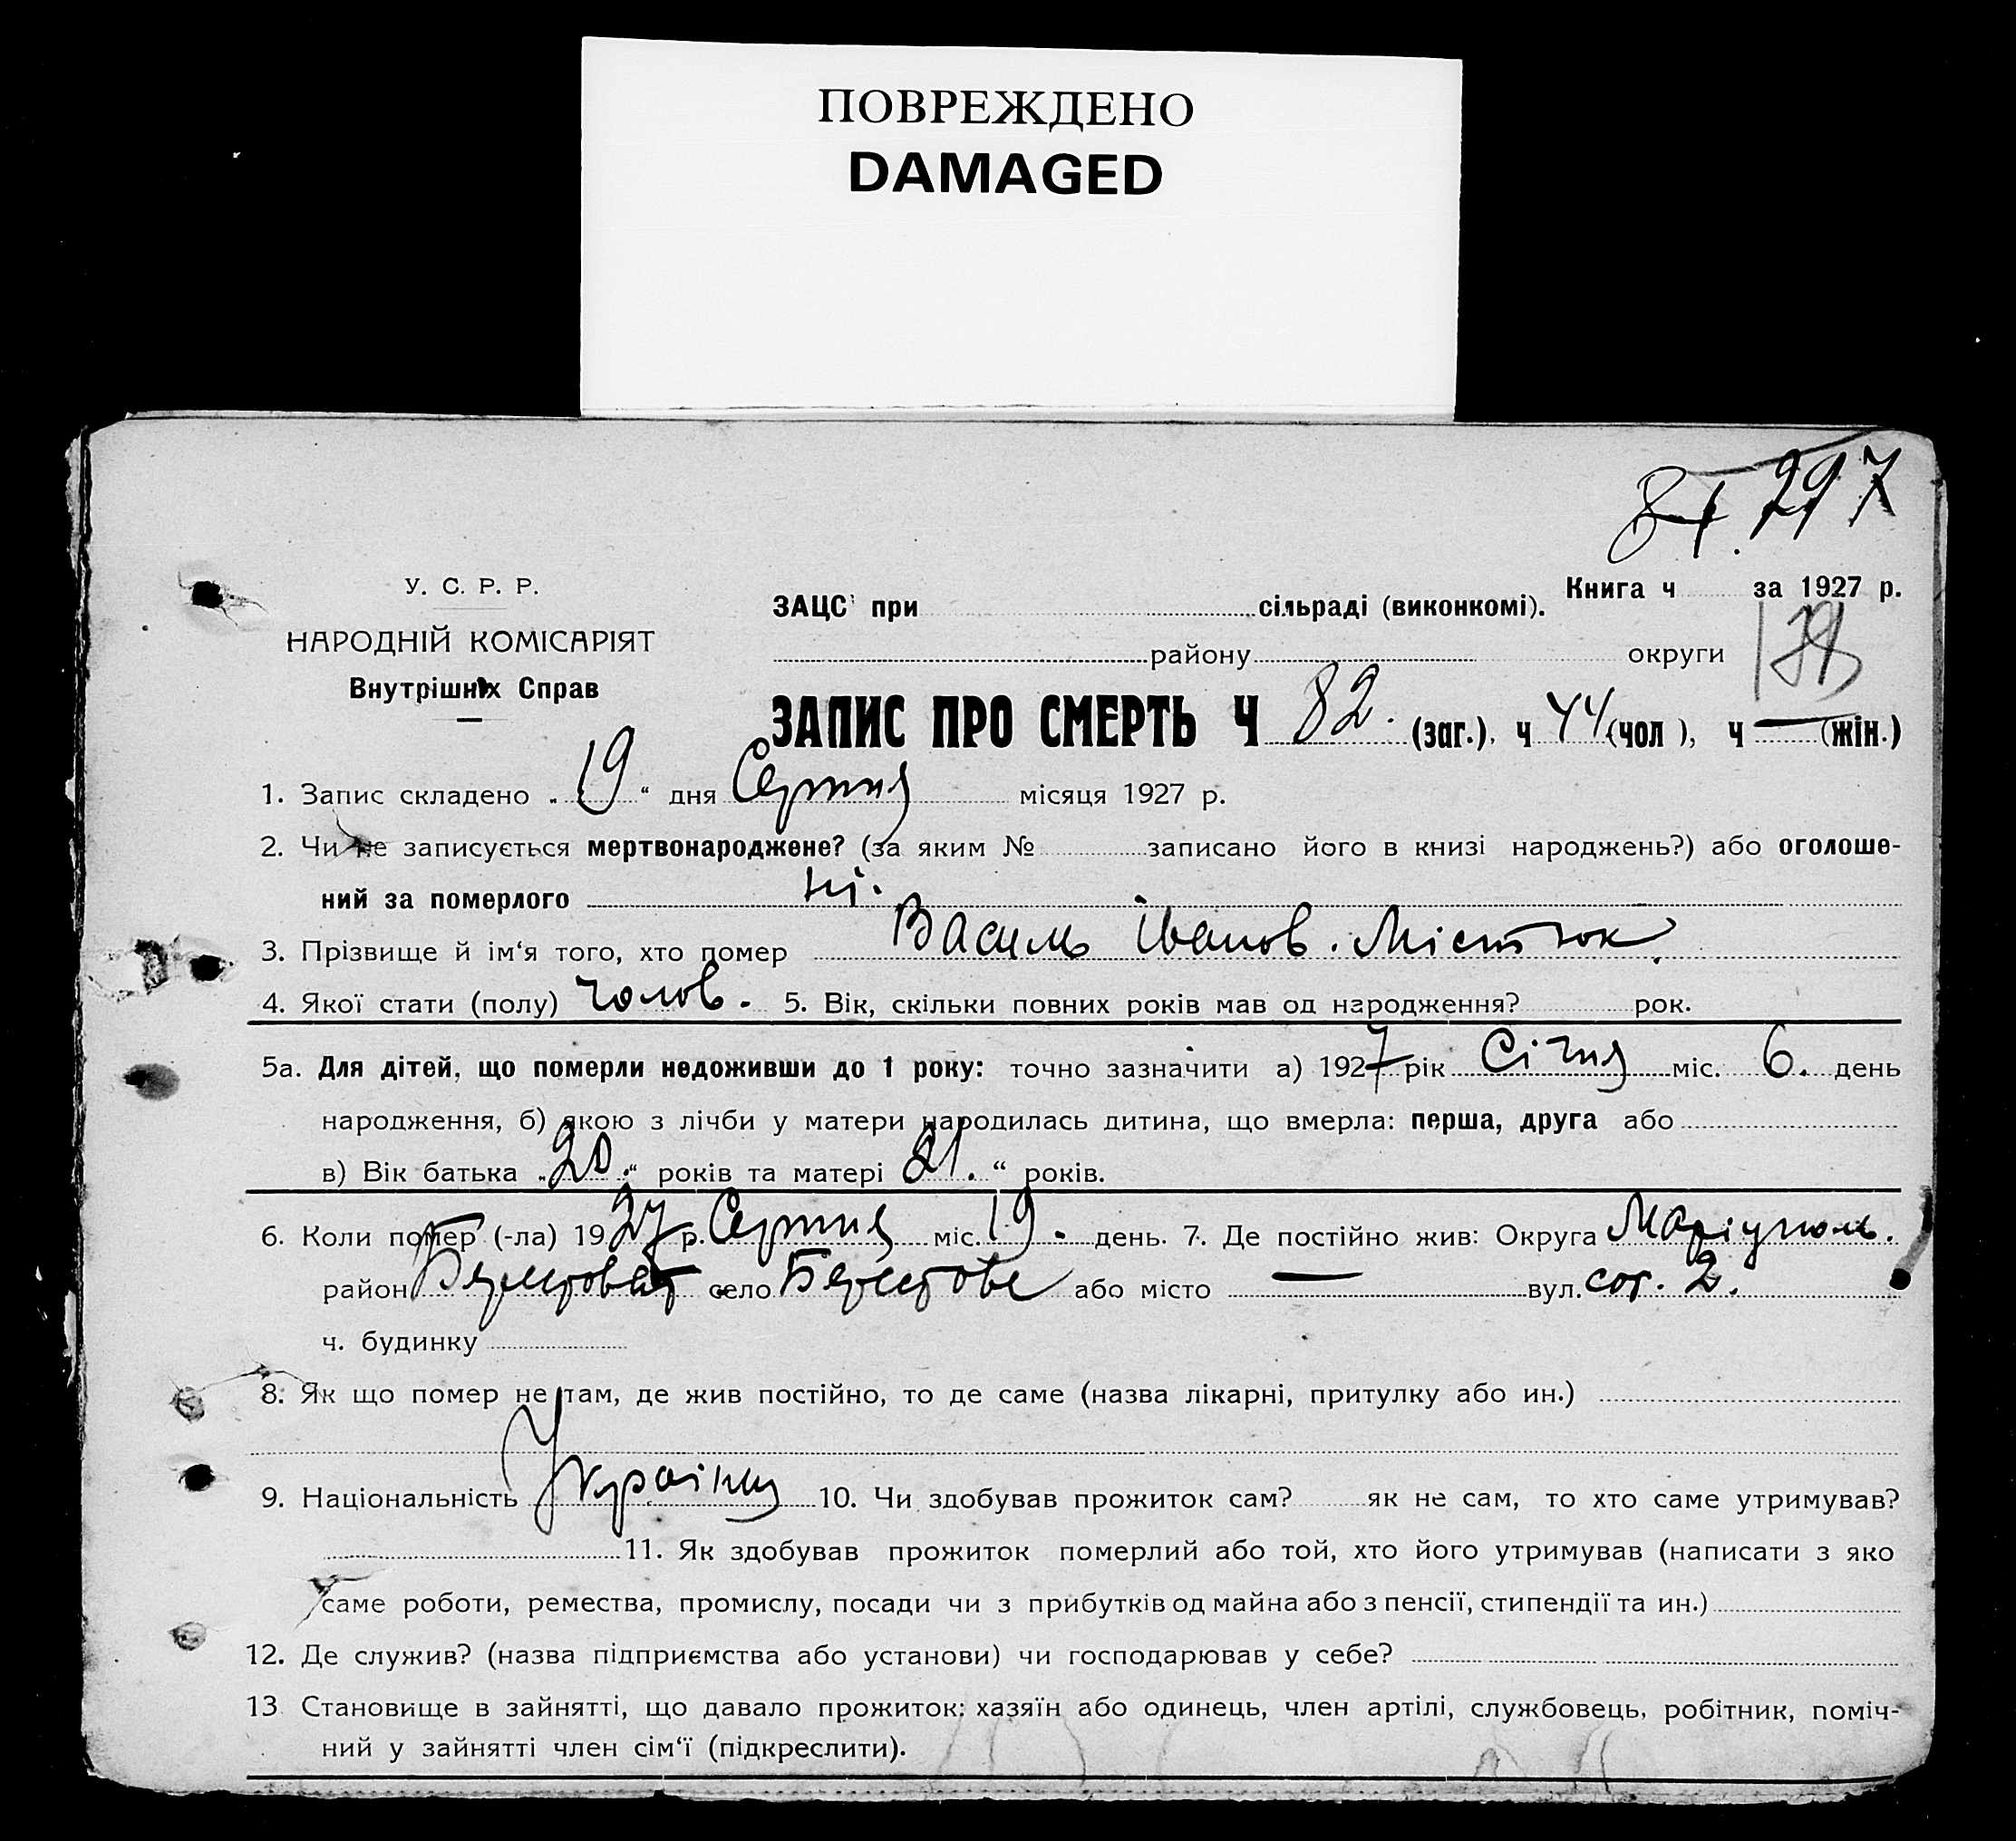 ПОВРЕЖДЕНО
DAMAGED
84. 297
У. С. Р. Р.
НАРОДНІЙ КОМІСАРІЯТ
Внутрішніх Справ
Книга ч за 1927 р.
ЗАЦС при сільраді (виконкомі).
району округи
ЗАПИС ПРО СМЕРТЬ Ч 82. (заг.), ч 44 (чол), ч — (жін.)
1. Запис складено „19“ дня Серпня місяця 1927 р.
2. Чи не записується мертвонароджене? (за яким № записано його в книзі народжень?) або оголоше-
ний за померлого ні.
3. Прізвище й ім‘я того, хто помер Василь Іванов. Містюк
4. Якої стати (полу) чолов. 5. Вік, скільки повних років мав од народження? рок.
5а. Для дітей, що померли недоживши до 1 року: точно зазначити а) 1927 рік Січня міс. 6. день
народження, б) якою з лічби у матери народилась дитина, що вмерла: перша, друга або
в) Вік батька „20.“ років та матері 21. “ років.
6. Коли помер (-ла) 1927 р. Серпня міс. 19. день. 7. Де постійно жив: Округа Маріуполь.
район Берестоват село Берестове або місто — вул. сот. 2.
ч. будинку
8. Як що помер не там, де жив постійно, то де саме (назва лікарні, притулку або ин.)
9. Національність Українц 10. Чи здобував прожиток сам? як не сам, то хто саме утримував?
11. Як здобував прожиток померлий або той, хто його утримував (написати з яко
саме роботи, ремества, промислу, посади чи з прибутків од майна або з пенсії, стипендії та ин.)
12. Де служив? (назва підприємства або установи) чи господарював у себе?
13 Становище в зайнятті, що давало прожиток: хазяїн або одинець, член артілі, службовець, робітник, поміч-
ний у зайнятті член сім‘ї (підкреслити).